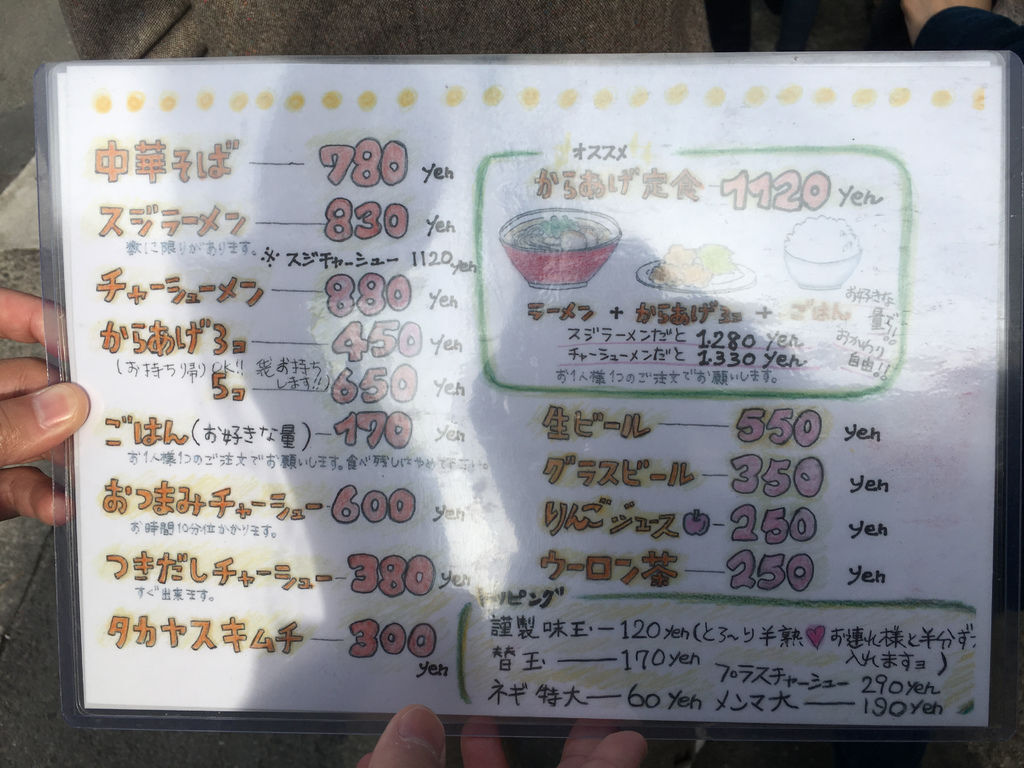 中華そば 780 yen
スジラーメン 830 yen
数に限りがあります。
※ スジチャーシュー 1120 yen
チャーシューメン 880 yen
からあげ3コ 450 yen
(お持ち帰りOK!! 袋お持ちします!!)
5コ 650 yen
ごはん(お好きな量) 170 yen
お1人様1つのご注文でお願いします。食べ残しはやめて
おつまみチャーシュー 600 yen
お時間10分位かかります。
つきだしチャーシュー 380 yen
すぐ出来ます。
タカヤスキムチ 300 yen
オススメ
からあげ定食 1120 yen
ラーメン + からあげ3コ + ごはん
お好きな量で!!
おかわり自由!!
スジラーメンだと 1.280 yen
チャーシューメンだと 1.330 yen
お1人様1つのご注文でお願いします。
生ビール 550 yen
グラスビール 350 yen
りんごジュース 250 yen
ウーロン茶 250 yen
ッピング
謹製味玉 120 yen (とろ〜り半熟♥お連れ様と半分ずつ
入れますョ)
替玉 170 yen
プラスチャーシュー 290 yen
ネギ特大 60 yen メンマ大 190 yen